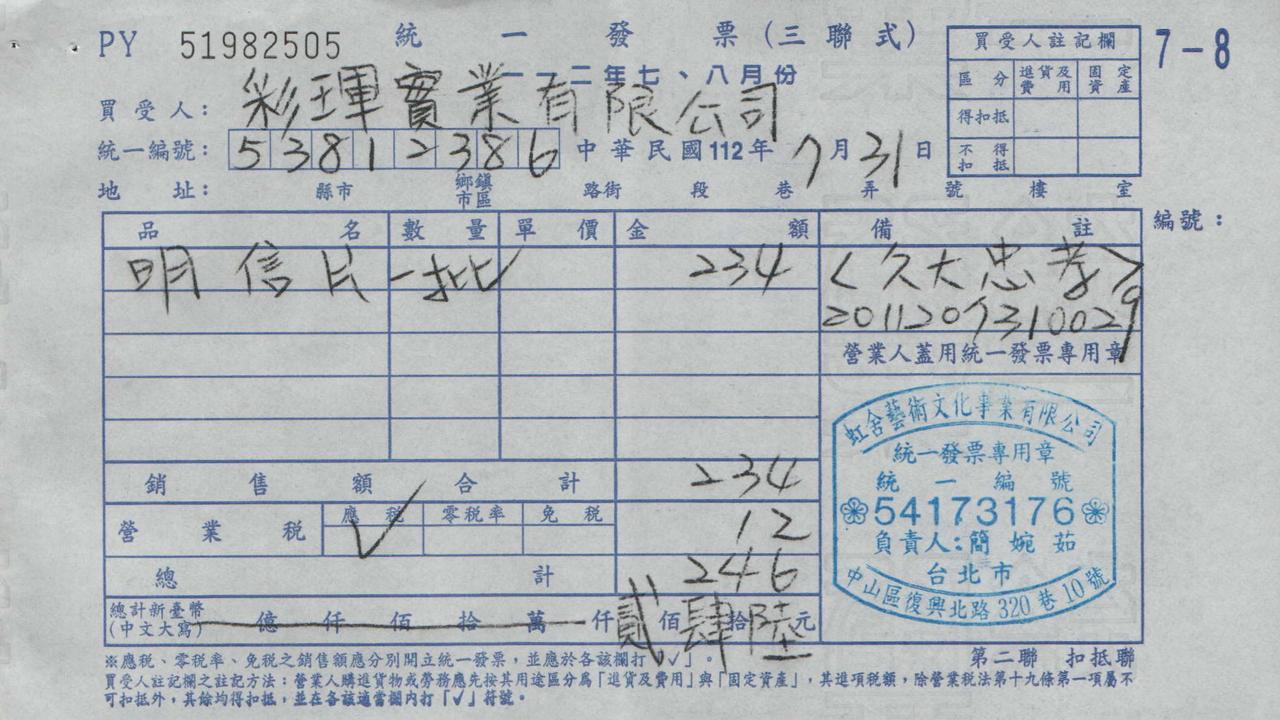 PY 51982505 統一發票(三聯式)
一一二年七、八月份
7-8
買受人註記欄
區分 進貨及費用 固定資產
得扣抵
不得扣抵
買受人: 彩琿實業有限公司
統一編號: 53812386 中華民國112年7月31日
地址: 縣市 鄉鎮市區 路街 段 巷 弄 號 樓 室
編號:
品名 數量 單價 金額 備註
明信片 一批 234 <久大忠孝>
20112073100029
營業人蓋用統一發票專用章
銷售額合計 234
營業稅 應稅 ✓ 零稅率 免稅 12
總計 246
總計新臺幣(中文大寫) 億仟佰拾萬仟貳佰肆拾陸元
虹舍藝術文化事業有限公司
統一發票專用章
統一編號
54173176
負責人:簡婉茹
台北市
中山區復興北路320巷10號
第二聯 扣抵聯
※應稅、零稅率、免稅之銷售額應分別開立統一發票,並應於各該欄打「✓」。
買受人註記欄之註記方法:營業人購進貨物或勞務應先按其用途區分為「進貨及費用」與「固定資產」,其進項稅額,除營業稅法第十九條第一項屬不
可扣抵外,其餘均得扣抵,並在各該適當欄內打「✓」符號。